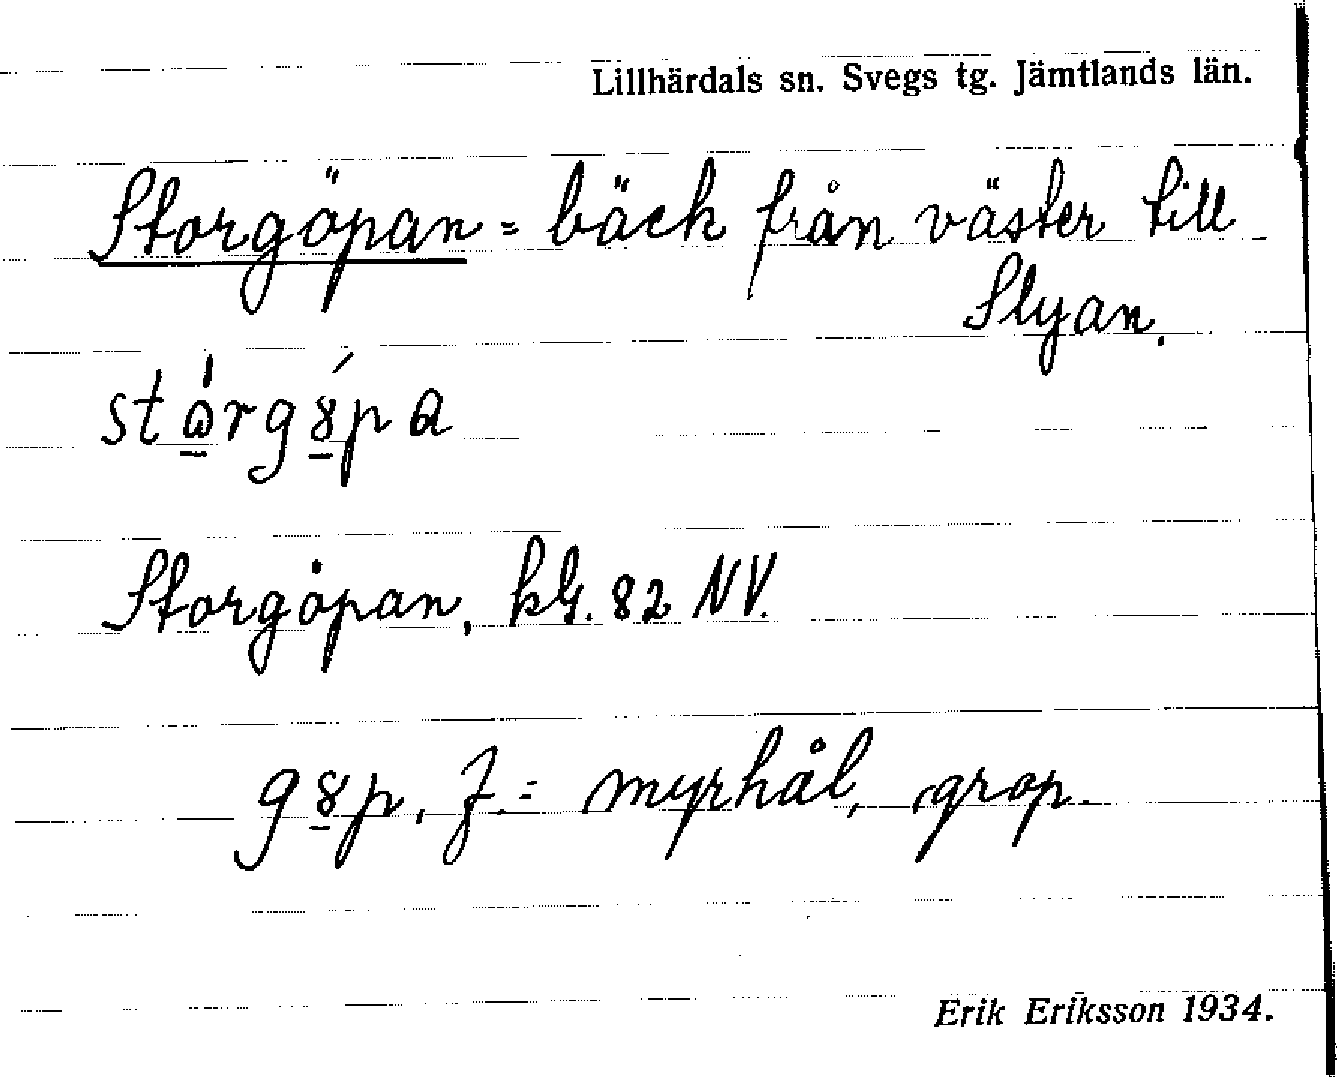 Lillhärdals sn. Svegs tg. Jämtlands län.
Storgöpan = bäck från väster till
Slyan.
Storgöpan, kbl. 82 NV.
gȣp, f. = myrhål, grop.
Erik Eriksson 1934.